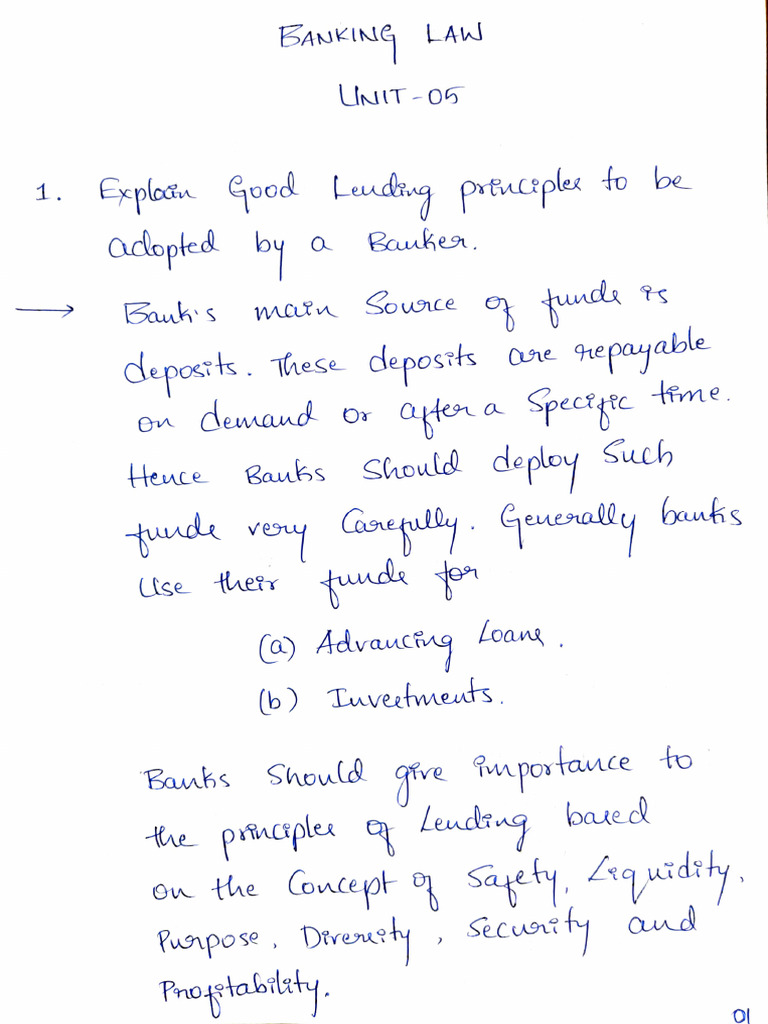 BANKING LAW
UNIT-05
1. Explain Good Lending principles to be
adopted by a Banker.
→ Bank's main Source of funds is
deposits. These deposits are repayable
on demand or after a Specific time.
Hence Banks Should deploy Such
funds very Carefully. Generally banks
Use their funds for
(a) Advancing Loans.
(b) Investments.
Banks Should give importance to
the principles of Lending based
on the Concept of Safety, Liquidity,
Purpose, Diversity, Security and
Profitability.
01